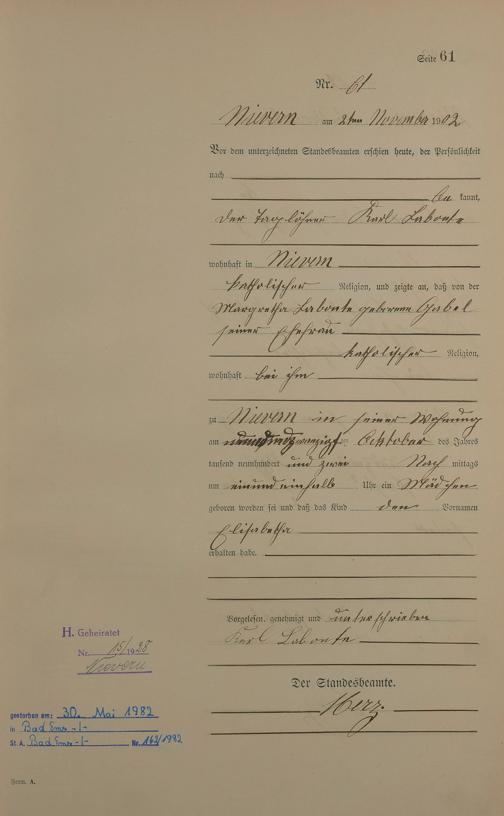 Seite 61
Nr. 61
Nievern am 2ten November 1902
Vor dem unterzeichneten Standesbeamten erschien heute, der Persönlichkeit
nach
be kannt,
der Taglöhner Karl Labonte
wohnhaft in Nievern
katholischer Religion, und zeigte an, daß von der
Margretha Labonte geborene Gabel
seiner Ehefrau
katholischer Religion,
wohnhaft bei ihm
zu Nievern in seiner Wohnung
am neunundzwanzigst Oktober des Jahres
tausend neunhundert und zwei Nach mittags
um einundeinhalb Uhr ein Mädchen
geboren worden sei und daß das Kind den Vornamen
Elisabetha
erhalten habe.
Vorgelesen, genehmigt und unterschrieben
Karl Labonte
Der Standesbeamte.
Herz
H. Geheiratet
Nr. 15/1928
Nievern
gestorben am: 30. Mai 1982
in Bad Ems -/-
St. A. Bad Ems -/- Nr. 162/1982
Form. A.